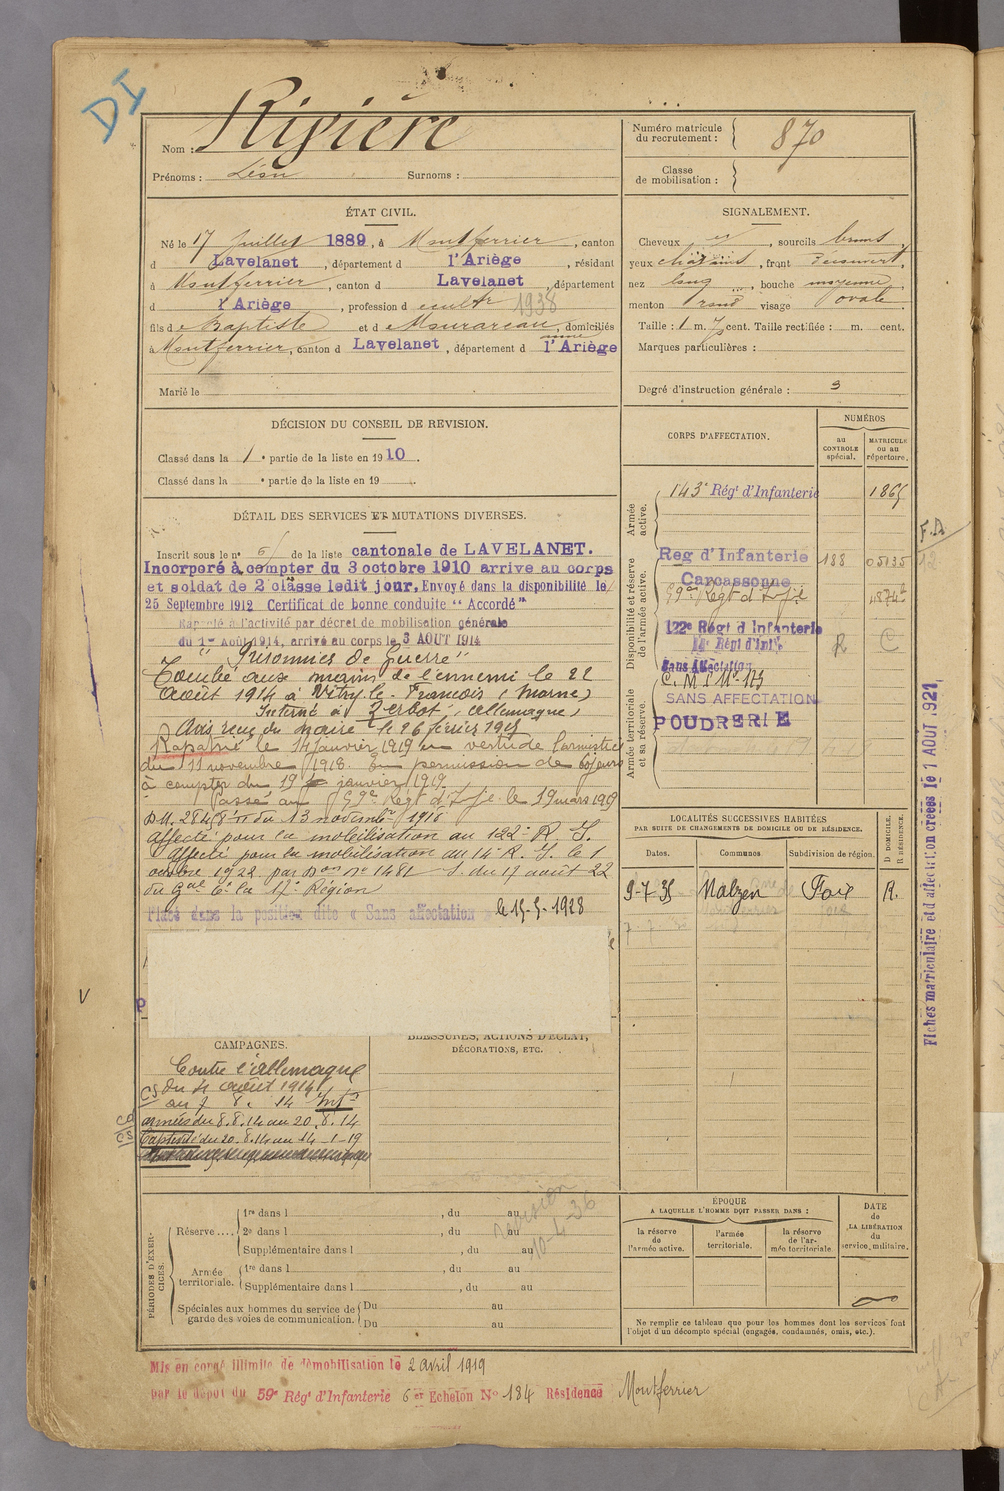 DI
Nom : Rivière
Prénoms : Léon Surnoms :
Numéro matricule du recrutement : 870
Classe de mobilisation :
ÉTAT CIVIL.
Né le 17 Juillet 1889, à Montferrier, canton
d Lavelanet, département d l'Ariège, résidant
à Montferrier, canton d Lavelanet, département
d l'Ariège, profession d cultr 1938
fils de Baptiste et d , domiciliés
à Montferrier, canton d Lavelanet, département d l'Ariège
Marié le
SIGNALEMENT.
Cheveux , sourcils bruns
yeux châtains, front découvert,
nez long, bouche moyenne,
menton rond visage ovale
Taille : 1 m. cent. Taille rectifiée : m. cent.
Marques particulières :
Degré d'instruction générale : 3
DÉCISION DU CONSEIL DE REVISION.
Classé dans la 1e partie de la liste en 1910.
Classé dans la e partie de la liste en 19 .
DÉTAIL DES SERVICES ET MUTATIONS DIVERSES.
Inscrit sous le n° de la liste cantonale de LAVELANET.
Incorporé à compter du 3 octobre 1910 arrive au corps
et soldat de 2e classe ledit jour, Envoyé dans la disponibilité le
25 Septembre 1912 Certificat de bonne conduite "Accordé"
Rappelé à l'activité par décret de mobilisation générale
du 1er Août 1914, arrivé au corps le 3 AOUT 1914
"Prisonnier de Guerre"
Tombé aux mains de l'ennemi le 22
Août 1914 à Vitry-le-François (Marne)
Interné à Zerbst, (Allemagne)
Avis reçu du maire le 26 février 1915
Rapatrié le 14 janvier 1919 en vertu de l'armistice
du 11 novembre 1918. En permission de 60 jours
à compter du 19 janvier 1919
Passé au 59e Régt d'Infie le 19 mars 1919
D.M. 28458 du 13 novembre 1918
Affecté pour la mobilisation au 122e R. I.
Affecté pour la mobilisation au 14e R. I. le 1
octobre 1922 par Don n° 1481 du 17 août 22
du Gal Ct la 17e Région
Placé dans la position dite « Sans affectation » le 15-5-1928
CORPS D'AFFECTATION.
NUMÉROS
au CONTROLE spécial.
MATRICULE ou au répertoire.
Armée active.
143e Régt d'Infanterie 1865
Disponibilité et réserve de l'armée active.
Reg d'Infanterie 188 05135
Carcassonne
59e Régt d'Infie
122e Régt d'Infanterie R C
Sans Affectation
Armée territoriale et sa réserve.
SANS AFFECTATION
POUDRERIE
F.D
12
LOCALITÉS SUCCESSIVES HABITÉES
PAR SUITE DE CHANGEMENTS DE DOMICILE OU DE RÉSIDENCE.
Dates. Communes Subdivision de région. D. DOMICILE. R. RÉSIDENCE.
9-7-35 Nalzen Foix R.
Fiches matriculaire et d'affectation créées le 1 AOUT 1921
V
CAMPAGNES.
Contre l'Allemagne
CS du 4 août 1914
au 7 8. 14 Intr
armées du 8.8.14 au 20.8.14
Captivité du 20.8.14 au 14-1-19
BLESSURES, ACTIONS D'ÉCLAT, DÉCORATIONS, ETC.
PÉRIODES D'EXERCICES.
Réserve....
1re dans l , du au
2e dans l , du au
Supplémentaire dans l , du au
Armée territoriale.
1re dans l , du au
Supplémentaire dans l , du au
Spéciales aux hommes du service de garde des voies de communication.
Du au
Du au
revision
10-4-36
ÉPOQUE
A LAQUELLE L'HOMME DOIT PASSER DANS :
la réserve de l'armée active.
l'armée territoriale.
la réserve de l'armée territoriale
DATE de LA LIBÉRATION du service militaire.
Ne remplir ce tableau que pour les hommes dont les services font l'objet d'un décompte spécial (engagés, condamnés, omis, etc.).
Mis en congé illimité de démobilisation le 2 Avril 1919
par le dépôt du 59e Régt d'Infanterie 6e Echelon N° 184 Résidence Montferrier